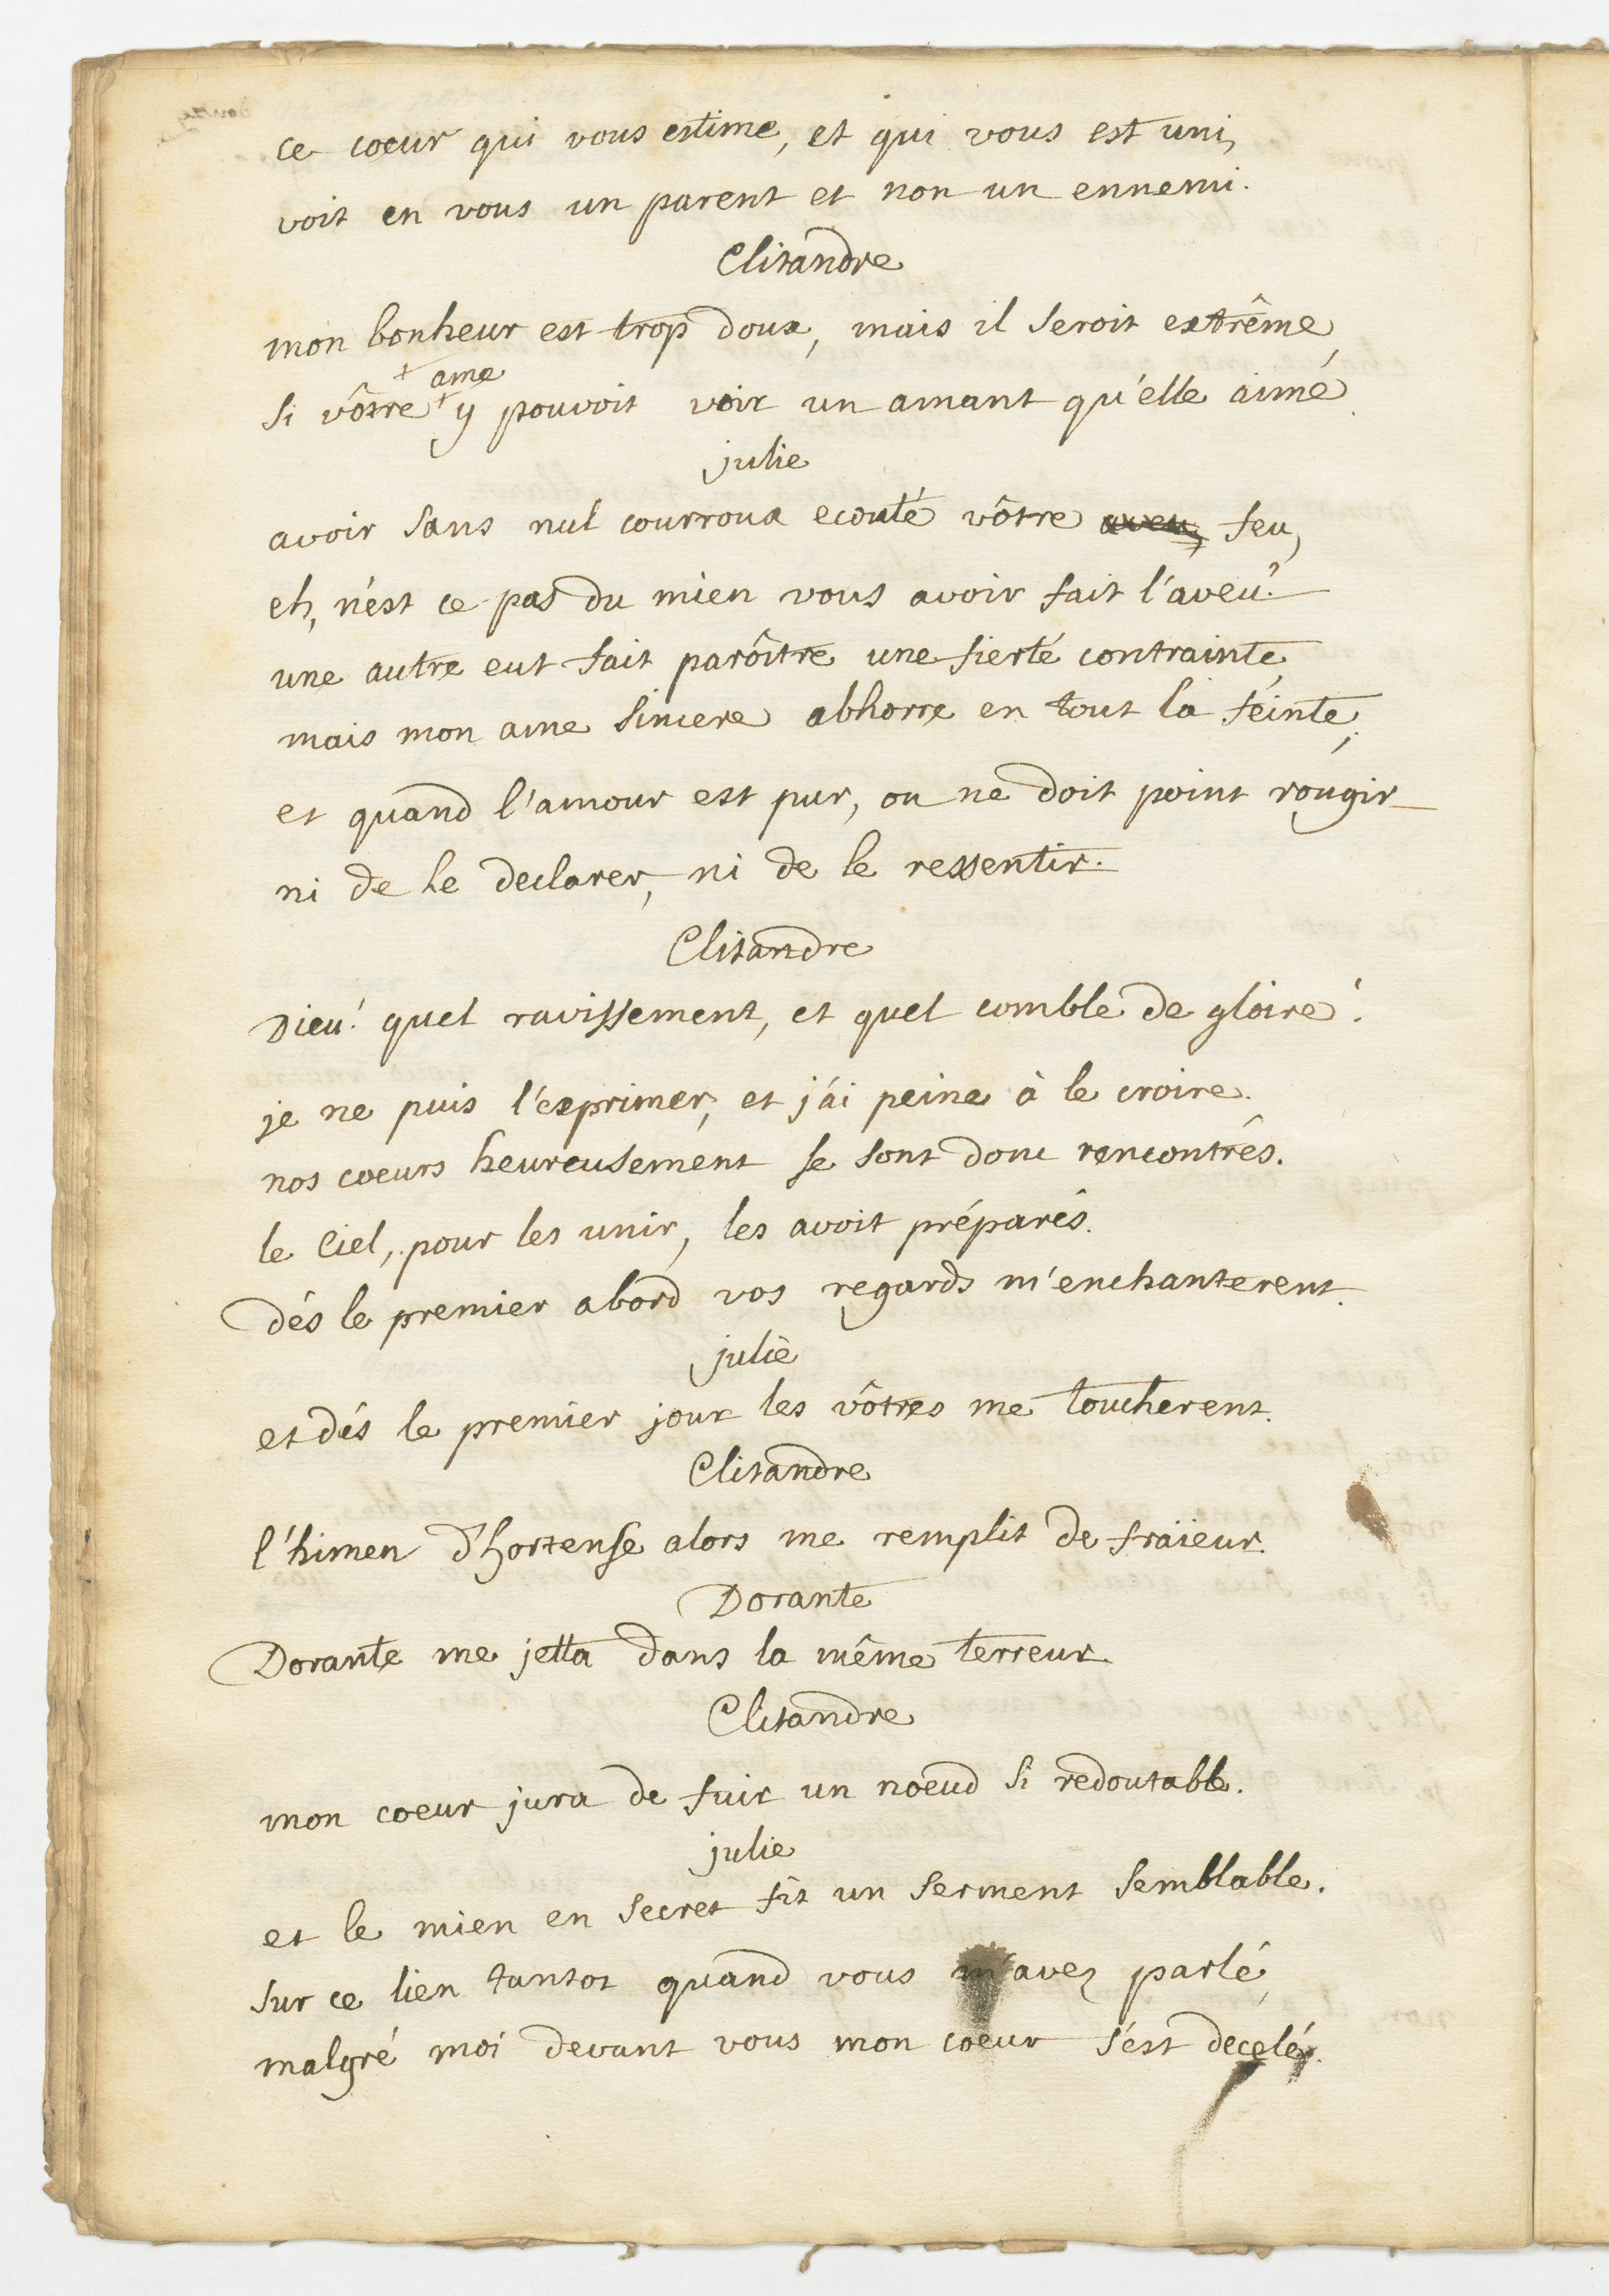 ce coeur qui vous estime, et qui vous est uni,
voit en vous un parent et non un ennemi.
Clitandre
mon bonheur est trop doux, mais il seroit extrême,
+ ame
si vôtre + y pouvoit voir un amant qu'elle aime.
julie
avoir sans nul courroux ecouté vôtre aveu, feu,
eh, n'est ce pas du mien vous avoir fait l'aveu?
une autre eut fait parôitre une fierté contrainte,
mais mon ame sincere abhorre en tout la feinte;
et quand l'amour est pur, on ne doit point rougir
ni de le declarer, ni de le ressentir.
Clitandre
Dieu! quel ravissement, et quel comble de gloire!
je ne puis l'exprimer, et j'ai peine à le croire.
nos coeurs heureusement se sont donc rencontrés.
le Ciel, pour les unir, les avoit préparés.
dés le premier abord vos regards m'enchanterent.
julie
et dés le premier jour les vôtres me toucherent.
Clitandre
l'himen d'hortense alors me remplit de fraïeur.
Dorante
Dorante me jetta dans la même terreur.
Clitandre
mon coeur jura de fuir un noeud si redoutable.
julie
et le mien en secret fit un serment semblable.
sur ce lien tantot quand vous m'avez parlé,
malgré moi devant vous mon coeur s'est decelé.